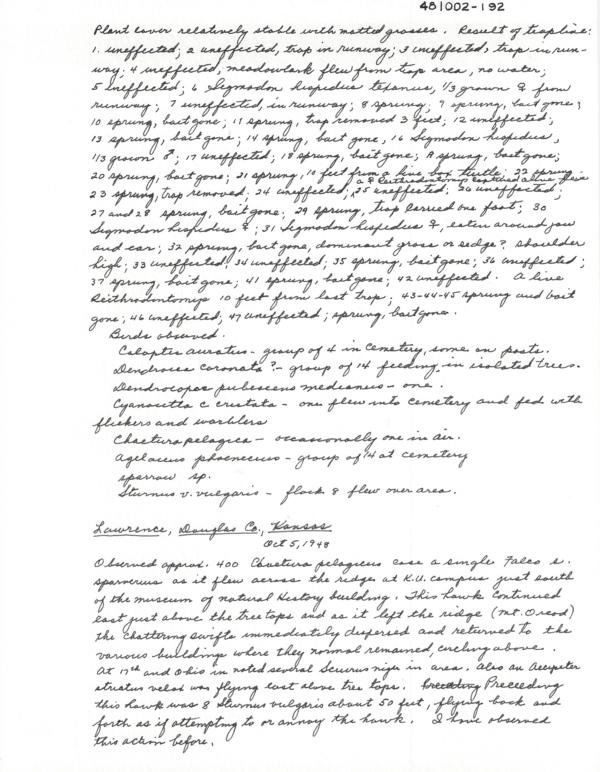 481002-192
Plant cover relatively stable with matted grasses. Result of trapline:
1. uneffected; 2 uneffected, trap in runway; 3 uneffected, trap in run-
way; 4 uneffected, meadowlark flew from trap area, no water;
5 uneffected; 6 Sigmodon hispidus texanus, 1/3 grown ♀ from
runway; 7 uneffected, in runway; 8 sprung; 9 sprung, bait gone;
10 sprung, bait gone; 11 sprung, trap removed 3 feet; 12 uneffected;
13 sprung, bait gone; 14 sprung, bait gone, 16 Sigmodon hispidus,
1/3 grown ♂; 17 uneffected; 18 sprung, bait gone; 19 sprung, bait gone;
20 sprung, bait gone; 21 sprung, 10 feet from a live box turtle; 22 sprung
a Reithrodontomys captured alive
23 sprung, trap removed; 24 uneffected; 25 uneffected; 26 uneffected;
27 and 28 sprung, bait gone; 29 sprung, trap carried one foot; 30
Sigmodon hispidus ♀; 31 Sigmodon hispidus ♀, eaten around jaw
and ear; 32 sprung, bait gone, dominant grass or sedge? shoulder
high; 33 uneffected; 34 uneffected; 35 sprung, bait gone; 36 uneffected;
37 sprung, bait gone; 41 sprung, bait gone; 42 uneffected. A live
Reithrodontomys 10 feet from last trap; 43-44-45 sprung and bait
gone; 46 uneffected; 47 uneffected; sprung, bait gone.
Birds observed.
Colaptes auratus - group of 4 in cemetery, some on posts.
Dendroica coronata? - group of 14 feeding in isolated trees.
Dendrocopos pubescens medianus - one.
Cyanocitta c cristata - one flew into cemetery and fed with
flickers and warblers
Chaetura pelagica - occassionally one in air.
Agelaius phoeneceus - group of 14 at cemetery
sparrow sp.
Sturnus v. vulgaris - flock 8 flew over area.
Lawrence, Douglas Co., Kansas
Oct 5, 1948
Observed approx. 400 Chaetura pelagicus case a single Falco s.
sparverius as it flew across the ridge at K.U. campus just south
of the museum of natural History building. This hawk continued
east just above the tree tops and as it left the ridge (Mt. Oread)
the chattering swifts immediately dispersed and returned to the
various buildings where they normal remained, circling above.
At 17th and Ohio in noted several Sciurus niger in area. Also an Accipiter
striatus velox was flying east above tree tops. Preceeding
this hawk was 8 Sturnus vulgaris about 50 feet, flying back and
forth as if attempting to or annoy the hawk. I have observed
this action before.